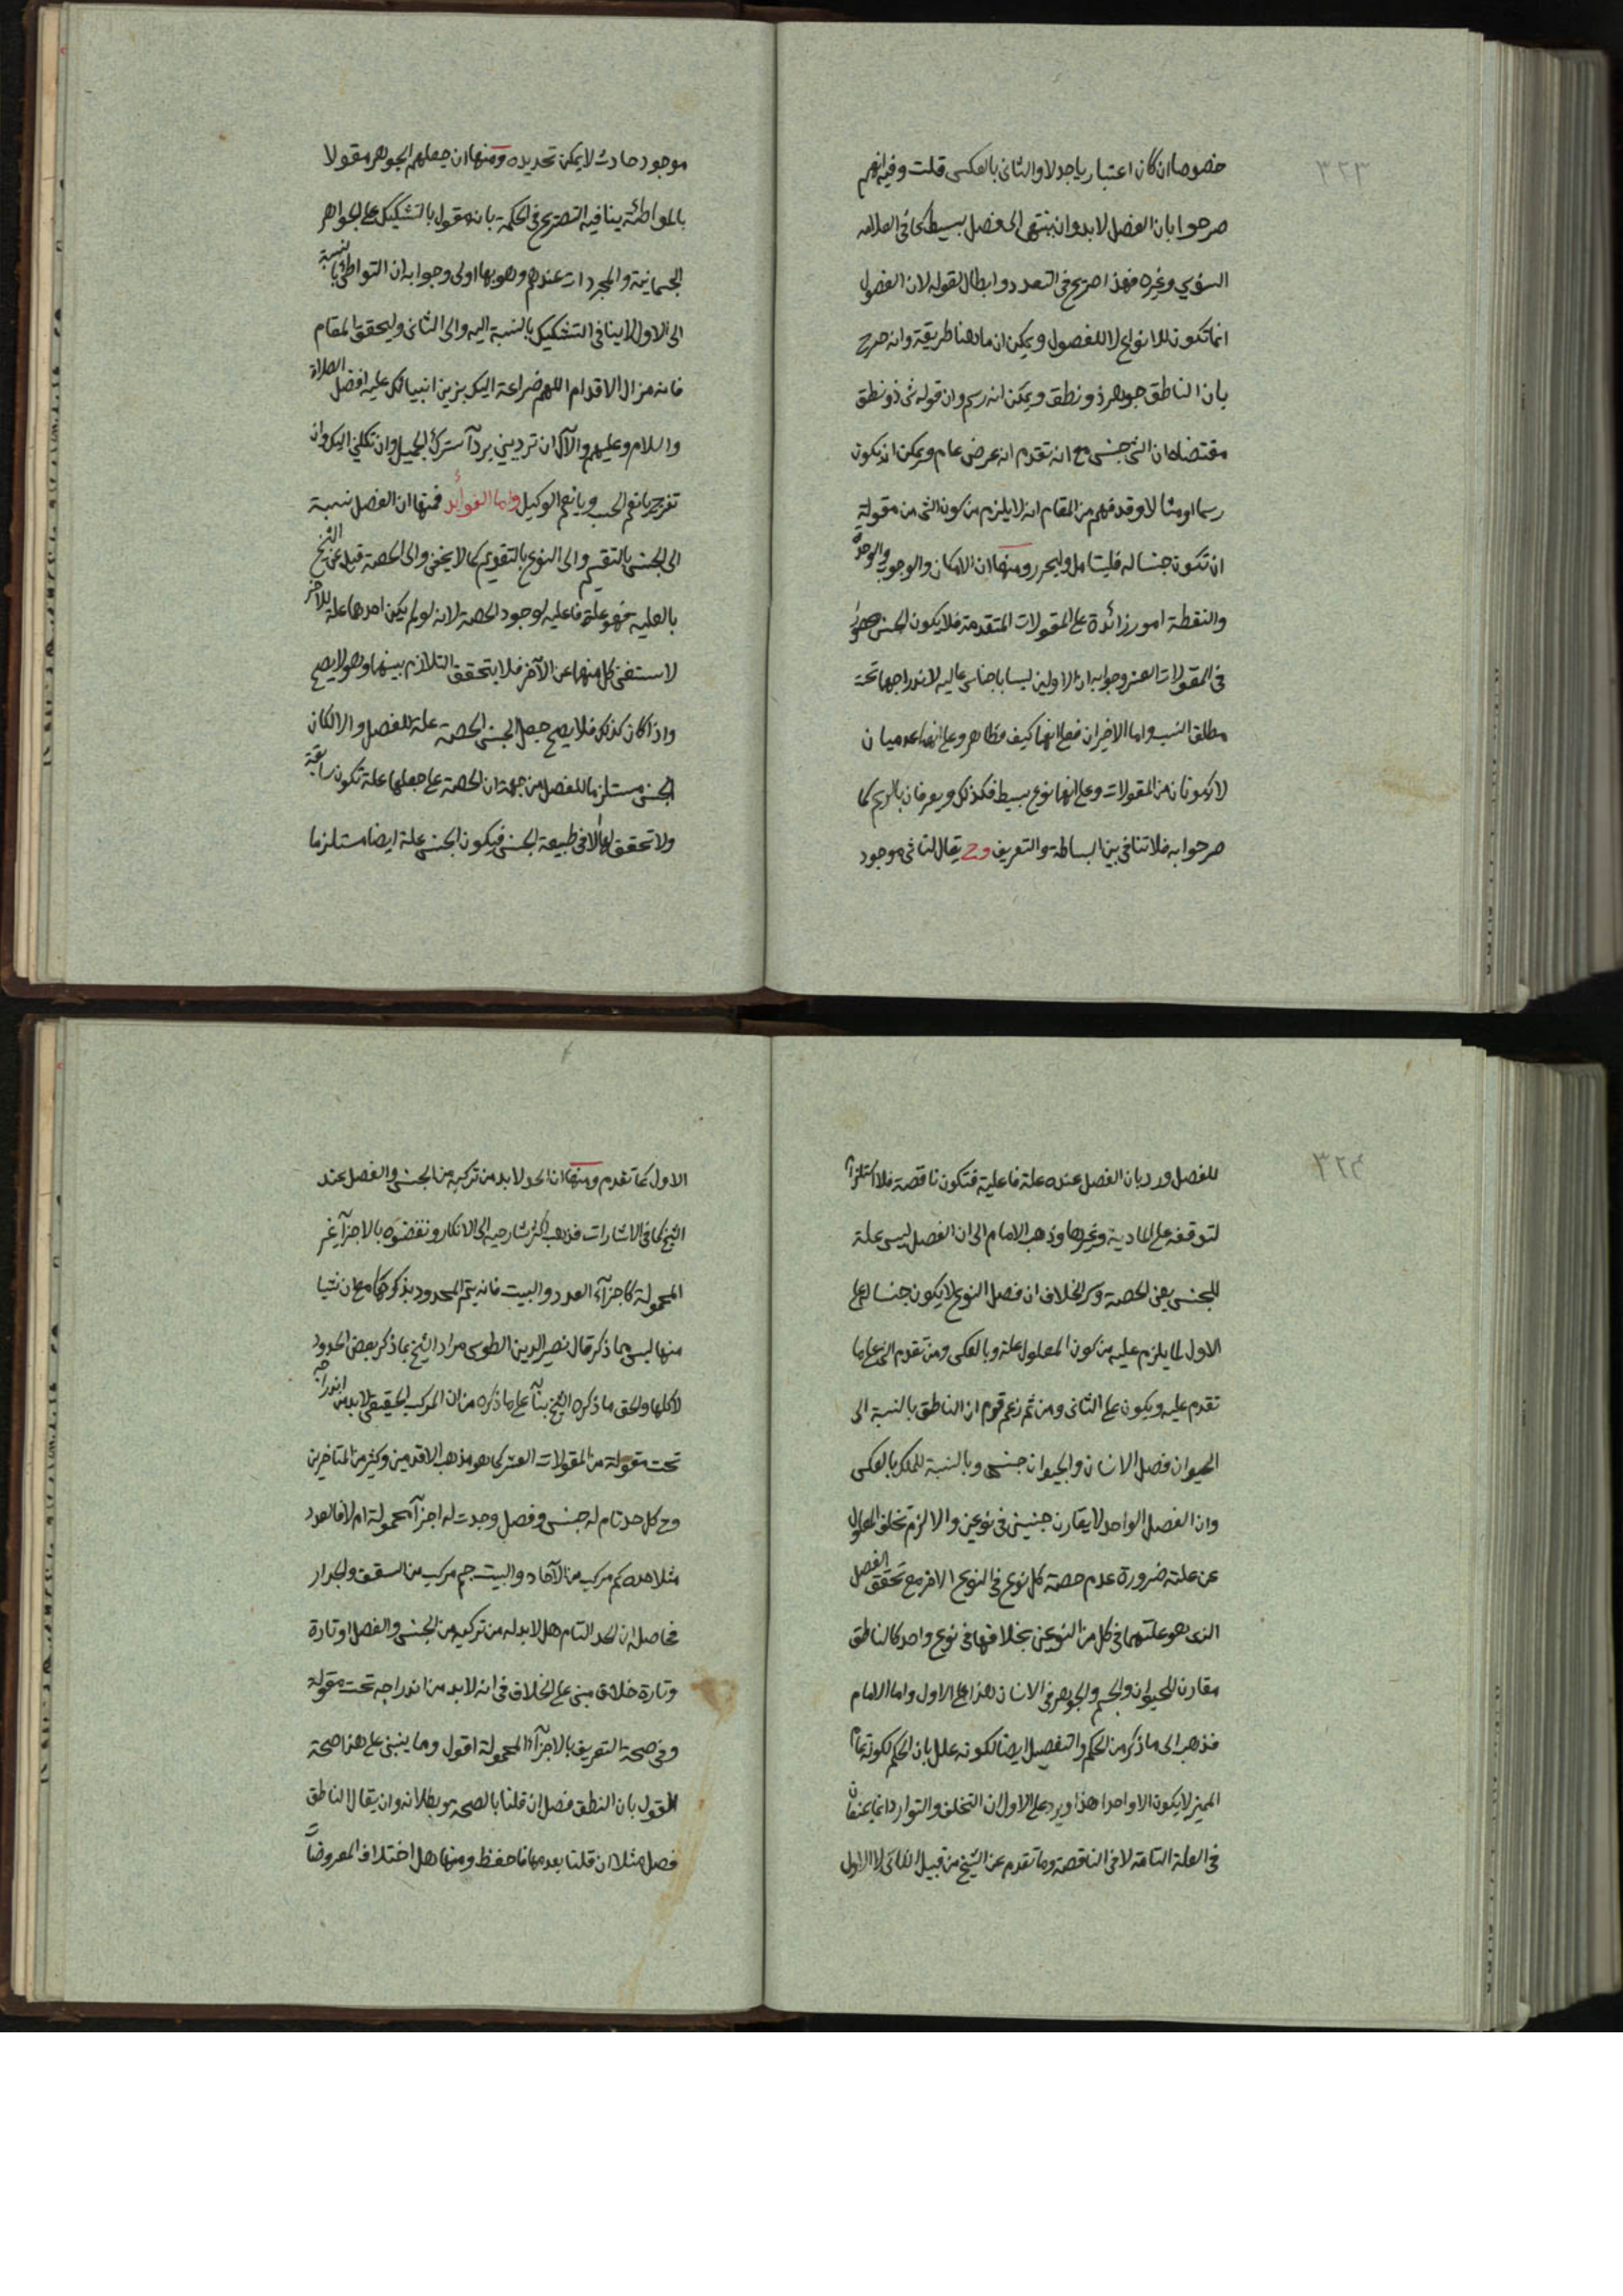 ٣٢٣
خصوصا ان كان اعتباريا جدلا والثانى بالعكس قلت وفيه انهم
صرحوا بان الفصل لا بد وان ينتهى الى فصل بسيط كما فى العلامه
السنوسي وغيره فهذا صريح فى التعدد وابطال لقوله لان الفصول
انما تكون للانواع لا للفصول ويمكن ان ما هنا طريقة وانه صرح
بان الناطق جوهر ذو نطق ويمكن انه رسم وان قوله شئ ذو نطق
مقتضاه ان الشئ جنس مع انه تقدم انه عرض عام ويمكن ان يكون
رسما او مثالا وقد فهم من المقام انه لا يلزم من كون الشئ من مقولة
ان تكون جنسا له فليتامل وليحرر ومنها ان الامكان والوجوب والوحدة
والنقطة امور زائدة على المقولات المتقدمة فلا يكون الجنس محصورا
فى المقولات العشر وجوابه ان الاولين ليسا باجناس عاليه لاندراجها تحت
مطلق النسب واما الاخيران فعلى انهما كيف فظاهر وعلى انهما عدميان
لا يكونان من المقولات وعلى انهما نوع بسيط فكذلك ويعرفان بالرسم كما
صرحوا به فلا تنافى بين البساطة والتعريف وح يقال لنا شئ موجود
موجود حادث لا يمكن تحديده ومنها ان جعلهم الجوهر مقولا
بالمواطئة ينافيه التصريح فى الحكمة بانه مقول بالتشكيك على الجواهر
الجسمانية والمجردات عندهم وهو بها اولى وجوابه ان التواطئ بالنسبة
الى الاول لا ينافى التشكيك بالنسبة اليه والى الثانى وليحقق المقام
فانه مزال الاقدام اللهم ضراعة اليك بزين انبيائك عليه افضل الصلاة
والسلام وعليهم والآل ان ترديني بردآ سترك الجميل وان تكلني اليك وان
تفرج يا نعم الحسب ويا نعم الوكيل واما الفوائد فمنها ان الفصل نسبة
الى الجنس بالتقسيم والى النوع بالتقويم كما لا يخفى والى الحصة قيل عن الشيخ
بالعليه فهو علة فاعليه لوجود الحصة لانه لو لم يكن احدهما علة للاخر
لاستغنى كل منهما عن الآخر فلا يتحقق التلازم بينهما وهو لا يصح
واذا كان كذلك فلا يصح جعل الجنس الحصة علة للفصل والا لكان
الجنس مستلزما للفصل من جهة ان الحصة على جعلها علة تكون سابقة
ولا تحقق لها الا فى طبيعة الجنس فيكون الجنس علة ايضا مستلزما
٣٢٤
للفصل ورد بان الفصل عنده علة فاعلية فتكون ناقصة فلا استلزام
لتوقفه على المادية وغيرها وذهب الامام الى ان الفصل ليس علة
للجنس يعنى الحصة وسر الخلاف ان فصل النوع لا يكون جنسا له على
الاول لما يلزم عليه من كون المعلول علة وبالعكس ومن تقدم الشئ على ما
تقدم عليه ويكون على الثانى ومن ثم زعم قوم ان الناطق بالنسبة الى
الحيوان فصل الانسان والحيوان جنس وبالنسبة للملك بالعكس
وان الفصل الواحد لا يقارن جنسين فى نوعين والا لزم تخلف المعلول
عن علته ضرورة عدم حصة كل نوع فى النوع الاخر مع تحقق الفصل
الذى هو علتهما فى كل من النوعين بخلافها فى نوع واحد كالناطق
مقارن للحيوان والجسم والجوهر فى الانسان هذا على الاول واما الامام
فذهب الى ما ذكر من الحكم والتفصيل ايضا لكونه علل بان الحكم لكونه تمام
المميز لا يكون الا واحدا هذا ويرد على الاول ان التخلف والتوارد انما يمتنعان
فى العلة التامة لا فى الناقصة وما تقدم عن الشيخ من قبيل الثانى لا الاول
الاول كما تقدم ومنها ان الحد لا بد من تركبه من الجنس والفصل عند
الشيخ كما فى الاشارات فذهب اكثر شارحيه الى الانكار ونقضوه بالاجزآ غير
المحمولة كاجزآء العدد والبيت فانه يتم المحدود بذكرها مع ان شيا
منها ليس مما ذكر قال نصير الدين الطوسى مراد الشيخ بما ذكر بعض الحدود
لا كلها والحق ما ذكره الشيخ بنآ على ما ذكره من ان المركب الحقيقى لا بد من اندراجه
تحت مقولة من المقولات العشر كما هو مذهب الاقدمين وكثير من المتاخرين
وح كل حد تام له جنس وفصل وجدت له اجزآ محمولة ام لا فالعدد
مثلا حده كم مركب من الآحاد والبيت جسم مركب من السقف والجدار
فحاصله ان الحد التام هل لا بد له من تركبه من الجنس والفصل او تارة
وتارة خلاف مبنى على الخلاف فى انه لا بد من اندراجه تحت مقولة
وفى صحة التعريف بالاجزآ المحمولة اقول وما ينبنى على هذا صحة
القول بان النطق فصل ان قلنا بالصحة وبطلانه وان يقال الناطق
فصل مثلا ان قلنا بعدمها فاحفظ ومنها هل اختلاف المعروضات